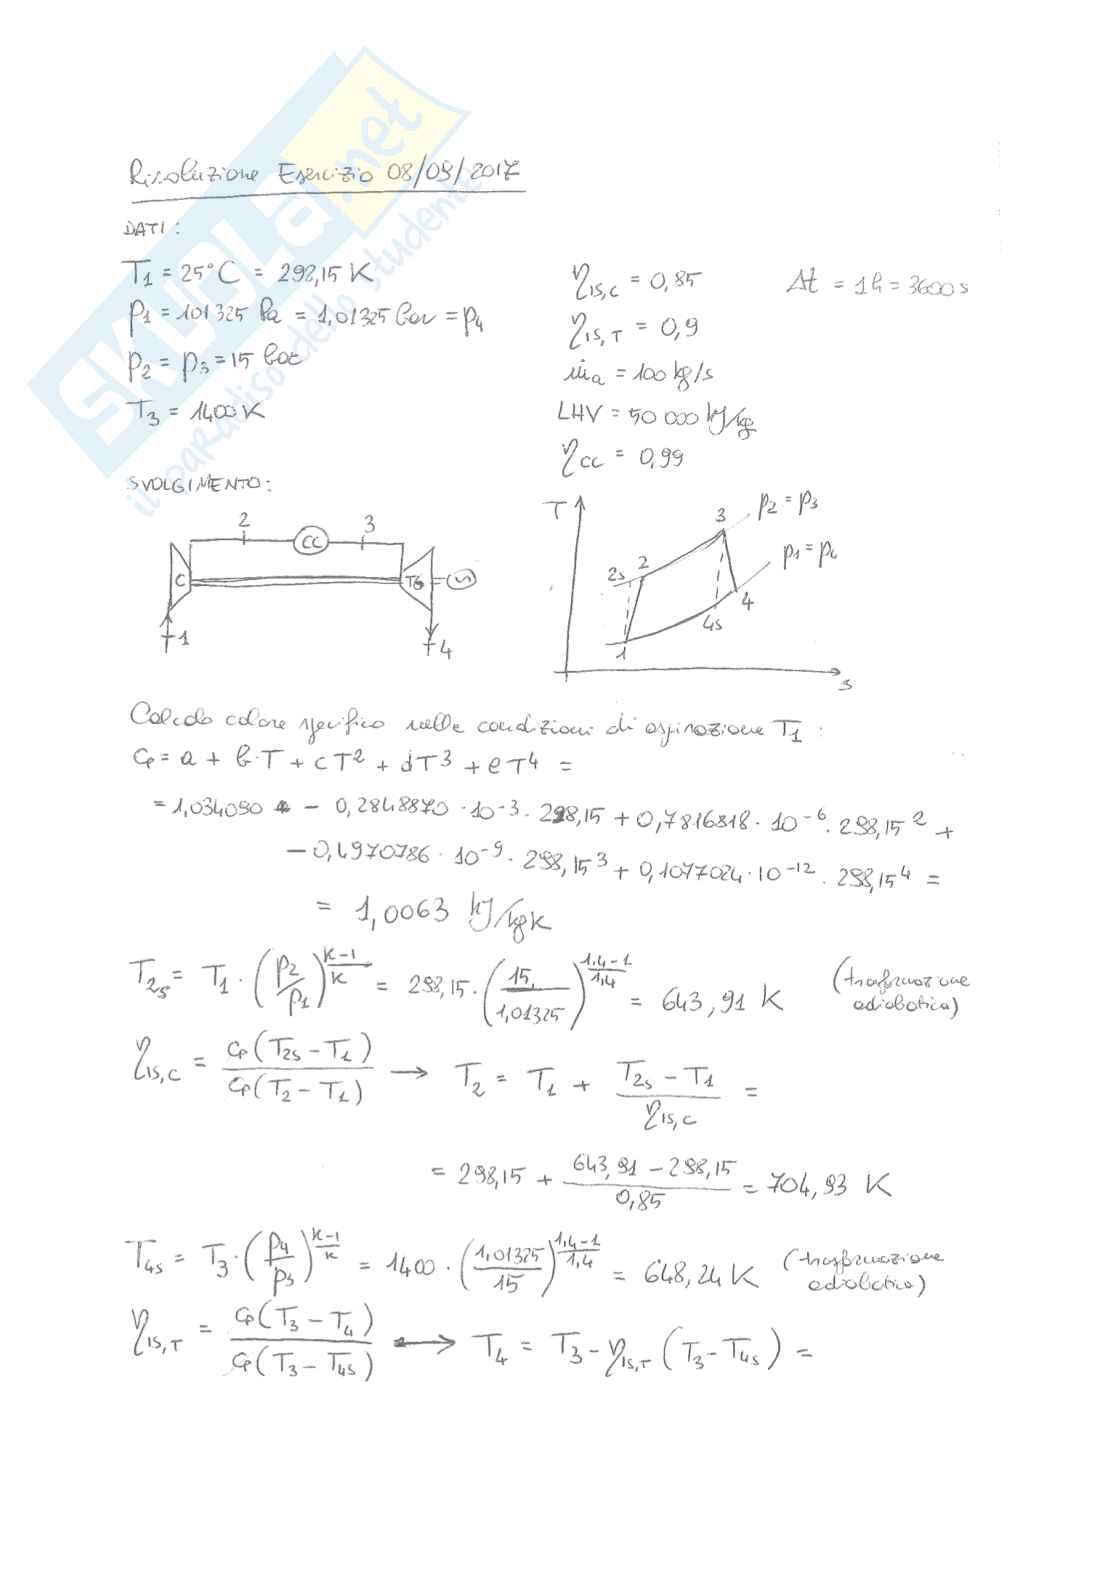 SKUOLA.net
il paradiso dello studente
Risoluzione Esercizio 08/09/2017
DATI:
T1 = 25°C = 298,15 K
p1 = 101325 Pa = 1,01325 bar = p4
p2 = p3 = 15 bar
T3 = 1400 K
ηis,c = 0,85
ηis,T = 0,9
ṁa = 100 kg/s
LHV = 50 000 kJ/kg
ηcc = 0,99
Δt = 1h = 3600 s
SVOLGIMENTO:
2 CC 3
C TG
1 4
T 3 p2 = p3
2s 2 p1 = p4
4s 4
1 s
Calcolo calore specifico nelle condizioni di aspirazione T1 :
cp = a + b·T + cT² + dT³ + eT⁴ =
= 1,034090 - 0,2848870 · 10⁻³ · 298,15 + 0,7816818 · 10⁻⁶ · 298,15² +
- 0,4970786 · 10⁻⁹ · 298,15³ + 0,1077024 · 10⁻¹² · 298,15⁴ =
= 1,0063 kJ/kgK
T2s = T1 · (p2/p1)^((k-1)/k) = 298,15 · (15/1,01325)^((1,4-1)/1,4) = 643,91 K (trasformazione adiabatica)
ηis,c = cp(T2s - T1)/cp(T2 - T1) → T2 = T1 + (T2s - T1)/ηis,c =
= 298,15 + (643,91 - 298,15)/0,85 = 704,93 K
T4s = T3 · (p4/p3)^((k-1)/k) = 1400 · (1,01325/15)^((1,4-1)/1,4) = 648,24 K (trasformazione adiabatica)
ηis,T = cp(T3 - T4)/cp(T3 - T4s) → T4 = T3 - ηis,T (T3 - T4s) =